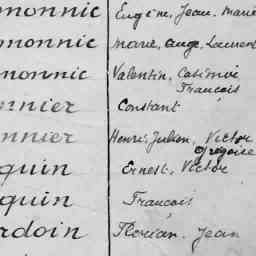 monnic Eugène, Jean, Marie
monnic Marie, Ange, Laurent
monnic Valentin, Casimir
François
nnier Constant
nnier Henri, Julien, Victor
Grégoire
quin Ernest, Victor
quin François
rdoin Florian, Jean